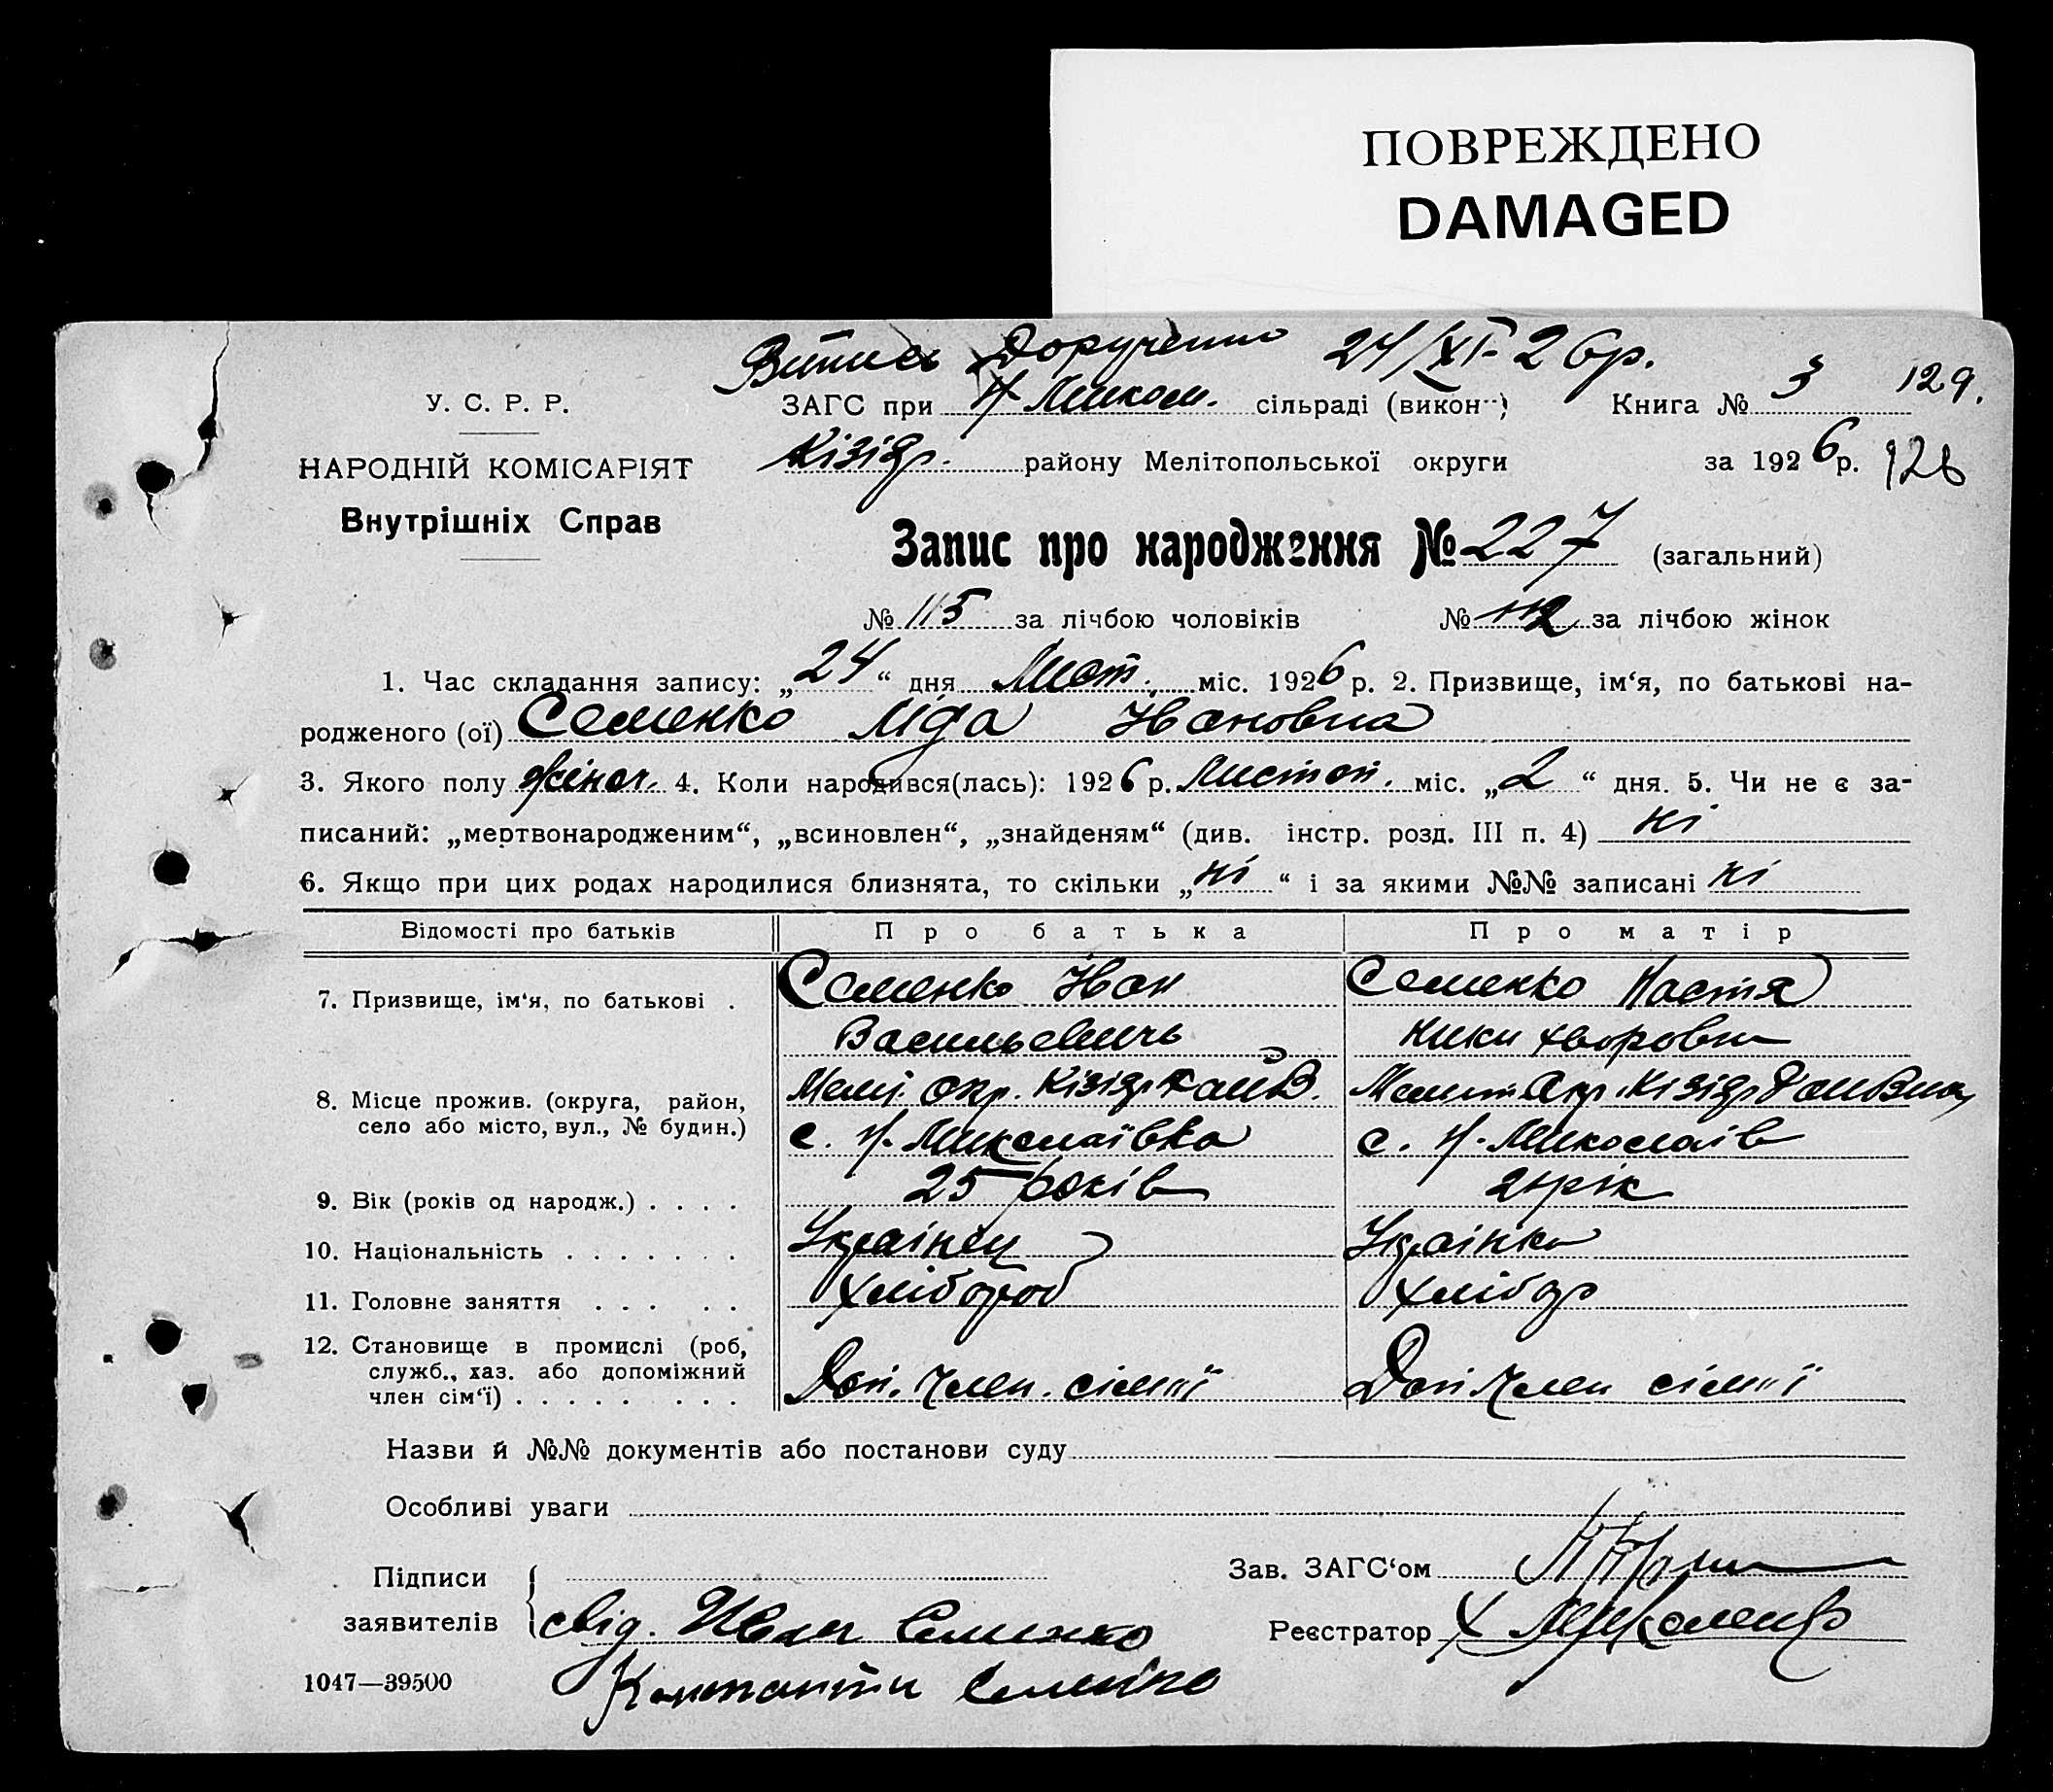 ПОВРЕЖДЕНО
DAMAGED
Витись Доручено 24/XI-26р.
У. С. Р. Р.
ЗАГС при Н Миком. сільраді (викон··) Книга № 3 129.
НАРОДНІЙ КОМІСАРІЯТ
Кізідр. району Мелітопольської округи за 1926р. 128
Внутрішніх Справ
Запис про народження № 227 (загальний)
№ 115 за лічбою чоловіків № 112 за лічбою жінок
1. Час складання запису: „24“ дня Лист. міс. 1926 р. 2. Призвище, ім‘я, по батькові на-
родженого (ої) Семенко Ліда Ивановна
3. Якого полу жіноч. 4. Коли народився(лась): 1926 р. Листоп. міс. „2“ дня. 5. Чи не є за-
писаний: „мертвонародженим“, „всиновлен“, „знайденям“ (див. інстр. розд. III п. 4) ні
6. Якщо при цих родах народилися близнята, то скільки „ні“ і за якими №№ записані ні
Відомості про батьків Про батька Про матір
7. Призвище, ім‘я, по батькові . Семенко Иван Семенко Настя
Васильевичь Никихворовна
8. Місце прожив. (округа, район, Мелі. Окр. Кізідр Мелит Окр. Кізідр
село або місто, вул., № будин.) с. Н. Миколаївка с. Н. Миколаів
9. Вік (років од народж.) . . . . 25 років 21 рік
10. Національність . . . . . . . Українец Українка
11. Головне заняття . . . . . Хлібороб Хлібор
12. Становище в промислі (роб,
служб., хаз. або допоміжний
член сім‘ї) . . . . . . . . Доп. Член. сімиї Доп Член сімиї
Назви й №№ документів або постанови суду
Особливі уваги
Підписи Зав. ЗАГС‘ом
заявителів свід. Иван Семенко Реєстратор
1047—39500 Константин Семенко